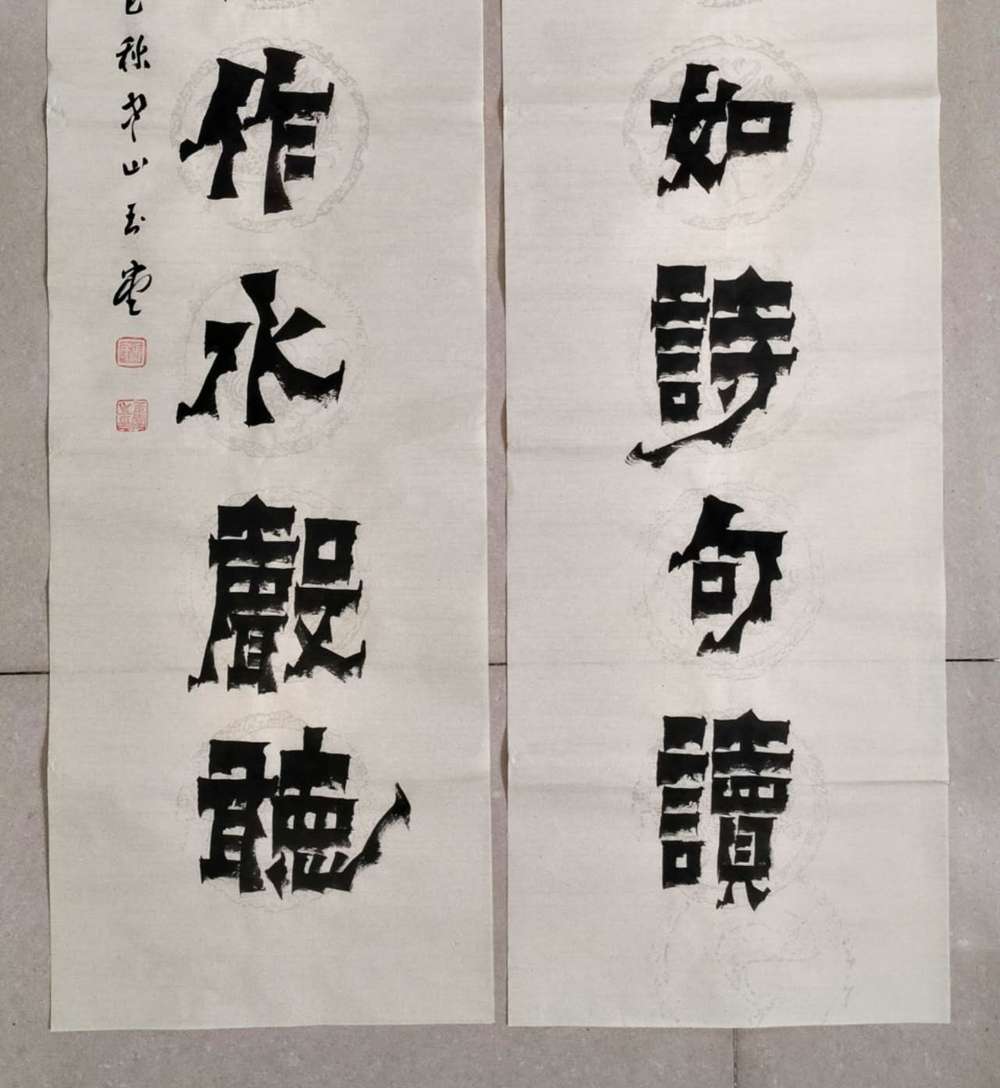 如詩句讀
作水聲聽
秋
山玉